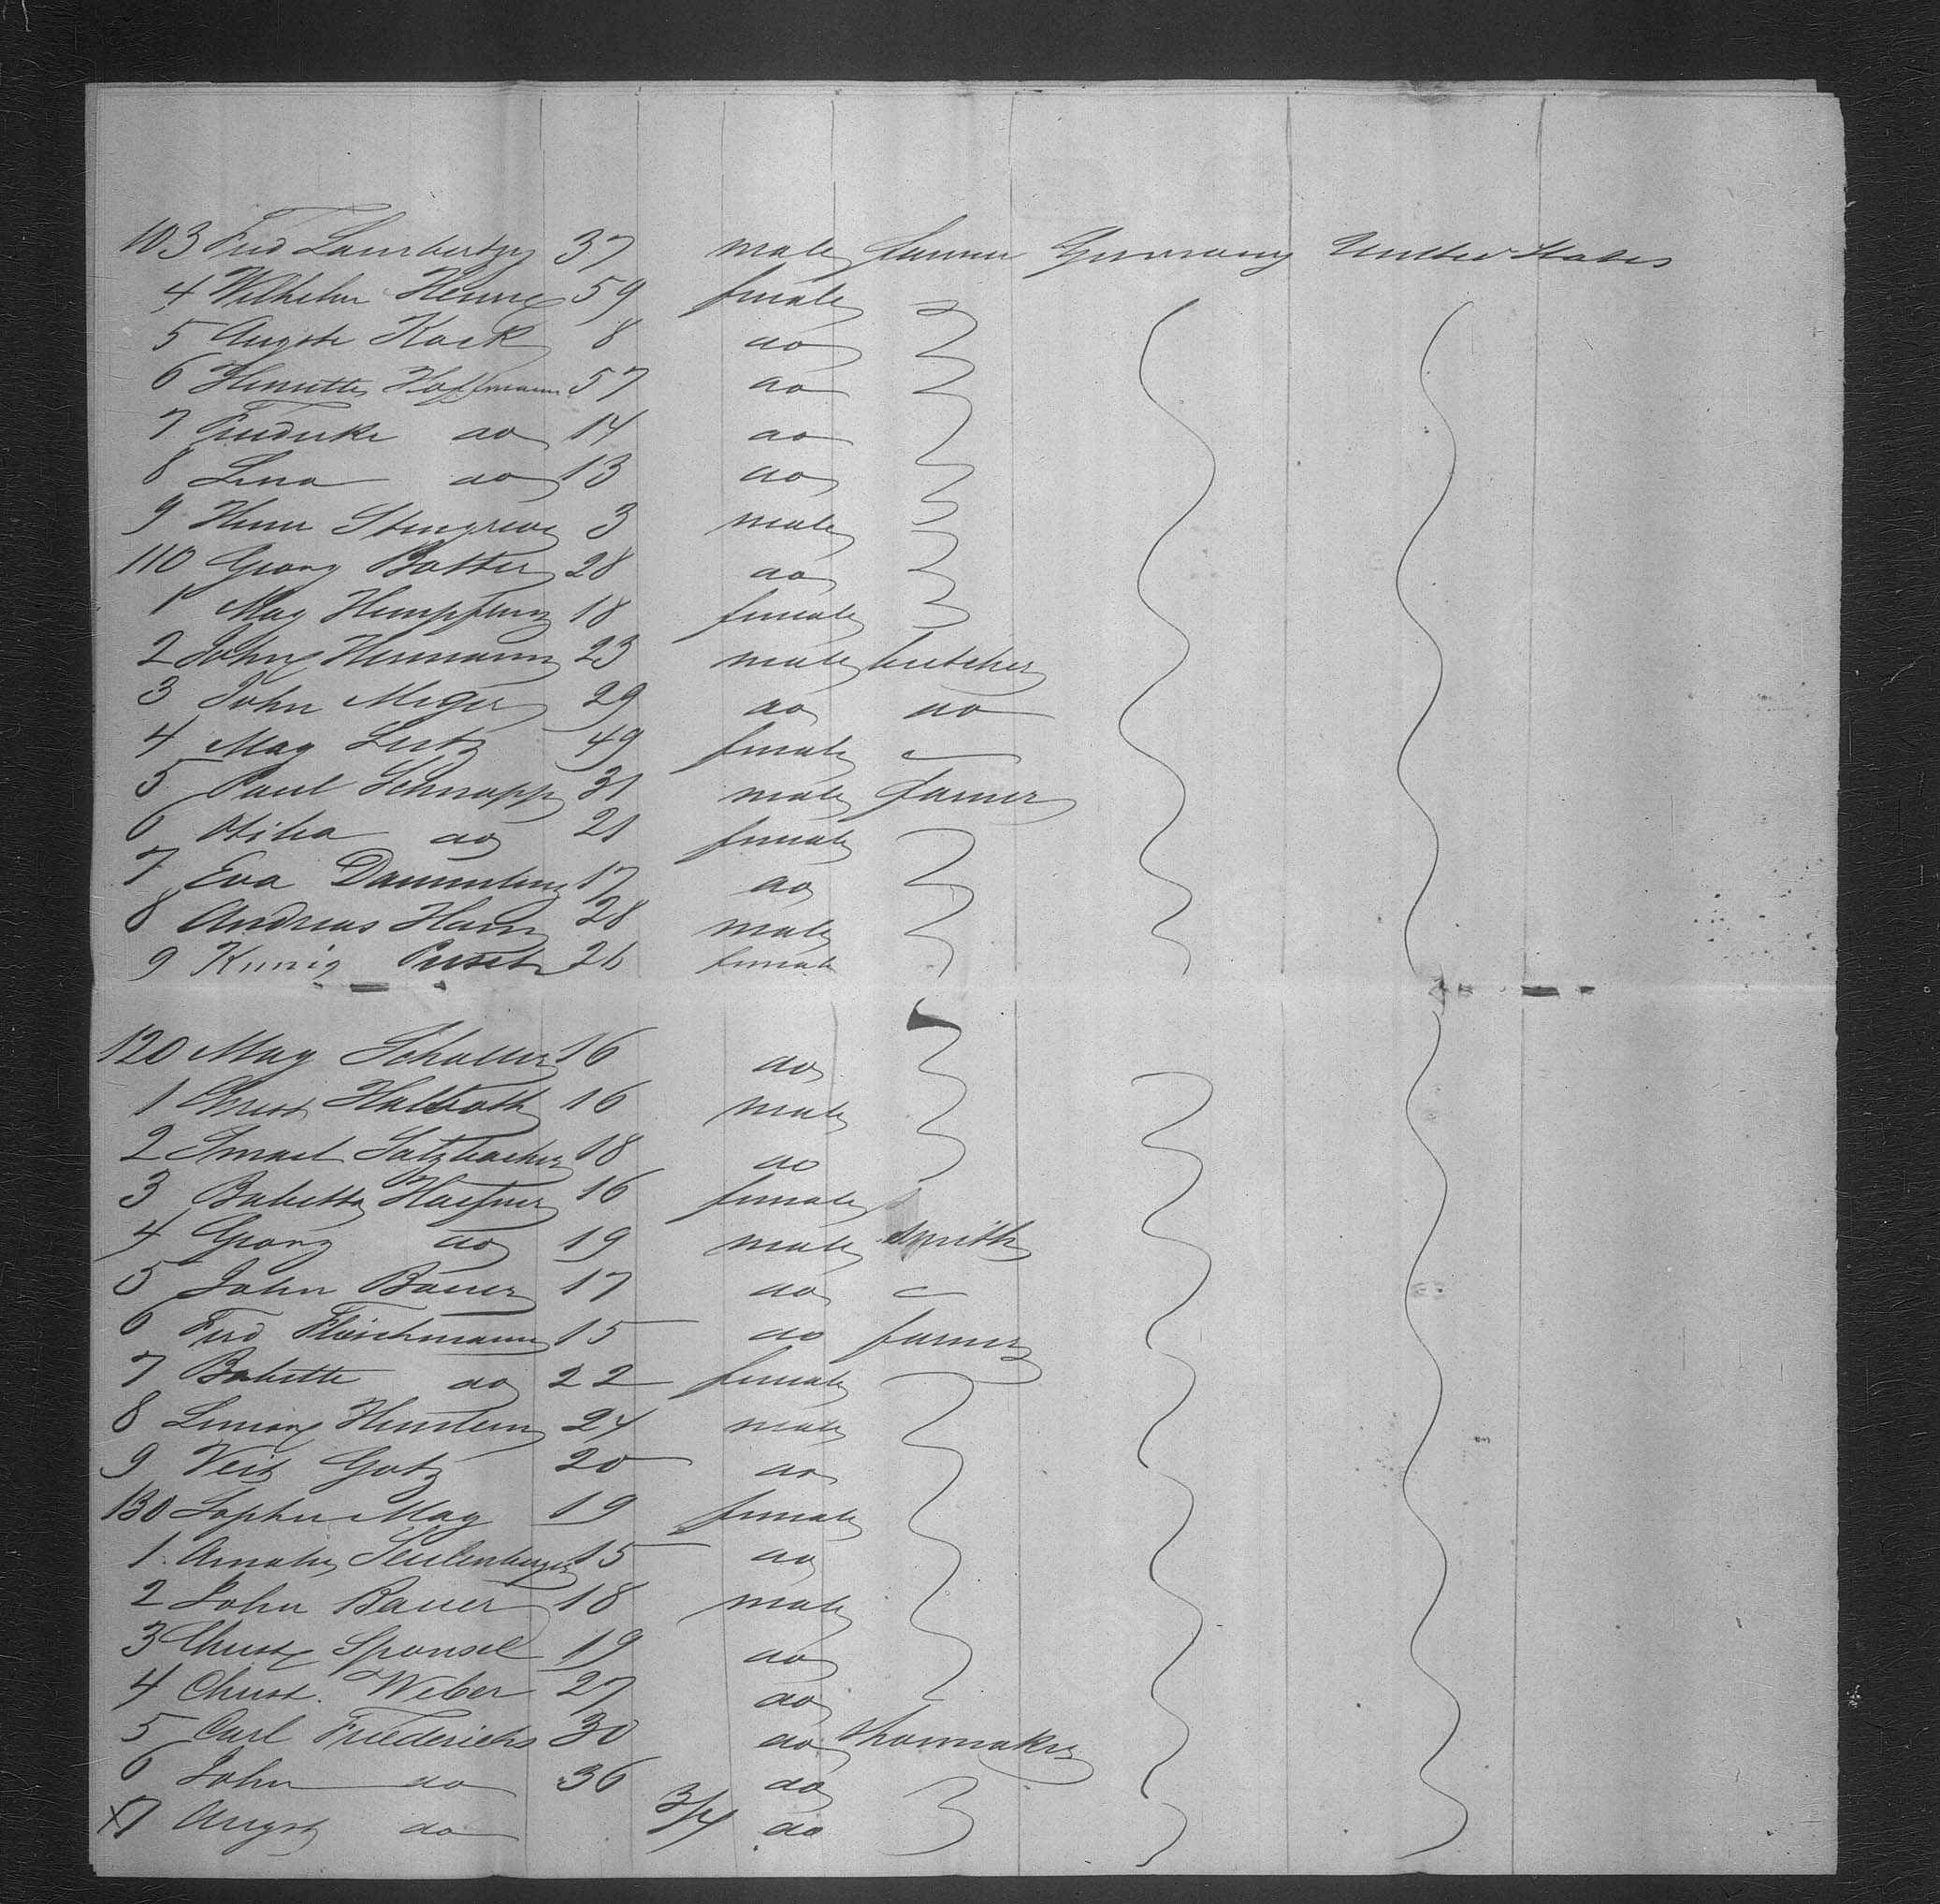 103 Fred Lambertzy 37 male farmer Germany United States
4 Wilhelm Henne 59 female
5 Auguste Kock 8 do
6 Henriette Hoffmann 57 do
7 Friederike do 14 do
8 Lina do 13 do
9 Henr 3 male
110 Georg Botter 28 do
1 Mag 18 female
2 John Hermann 23 male butcher
3 John Meyer 29 do do
4 Mag Lutz 49 female —
5 Paul Schnapp 31 male farmer
6 do 21 female
7 Eva 17 do
8 Andreas Hain 28 male
9 Kunig 26 female
120 Mag Schaller 16 do
1 Christ 16 male
2 Salzbacher 18 do
3 Babetta Haefner 16 female
4 Georg do 19 male smith
5 John Bauer 17 do —
6 Ferd Fleischmann 15 do farmer
7 Babette do 22 female
8 24 male
9 Veit Gotz 20 do
130 Sophie May 19 female
1 Amalie 15 do
2 John Bauer 18 male
3 Christ Sponsel 19 do
4 Christ. Weber 27 do
5 Carl Friederichs 30 do shoemaker
6 John do 36 do
x7 August do 3/4 do